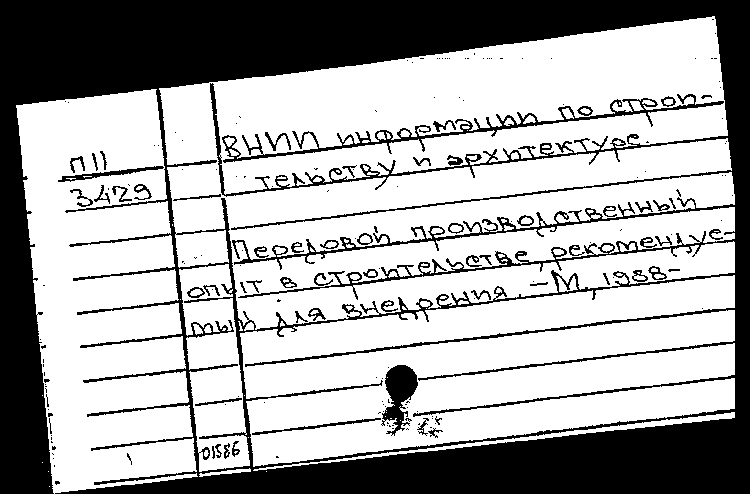 П11
3429
ВНИИ информации по строи-
тельству и архитектуре.
Передовой производственный
опыт в строительстве, рекомендуе-
мый для внедрения. - М, 1988-
01586